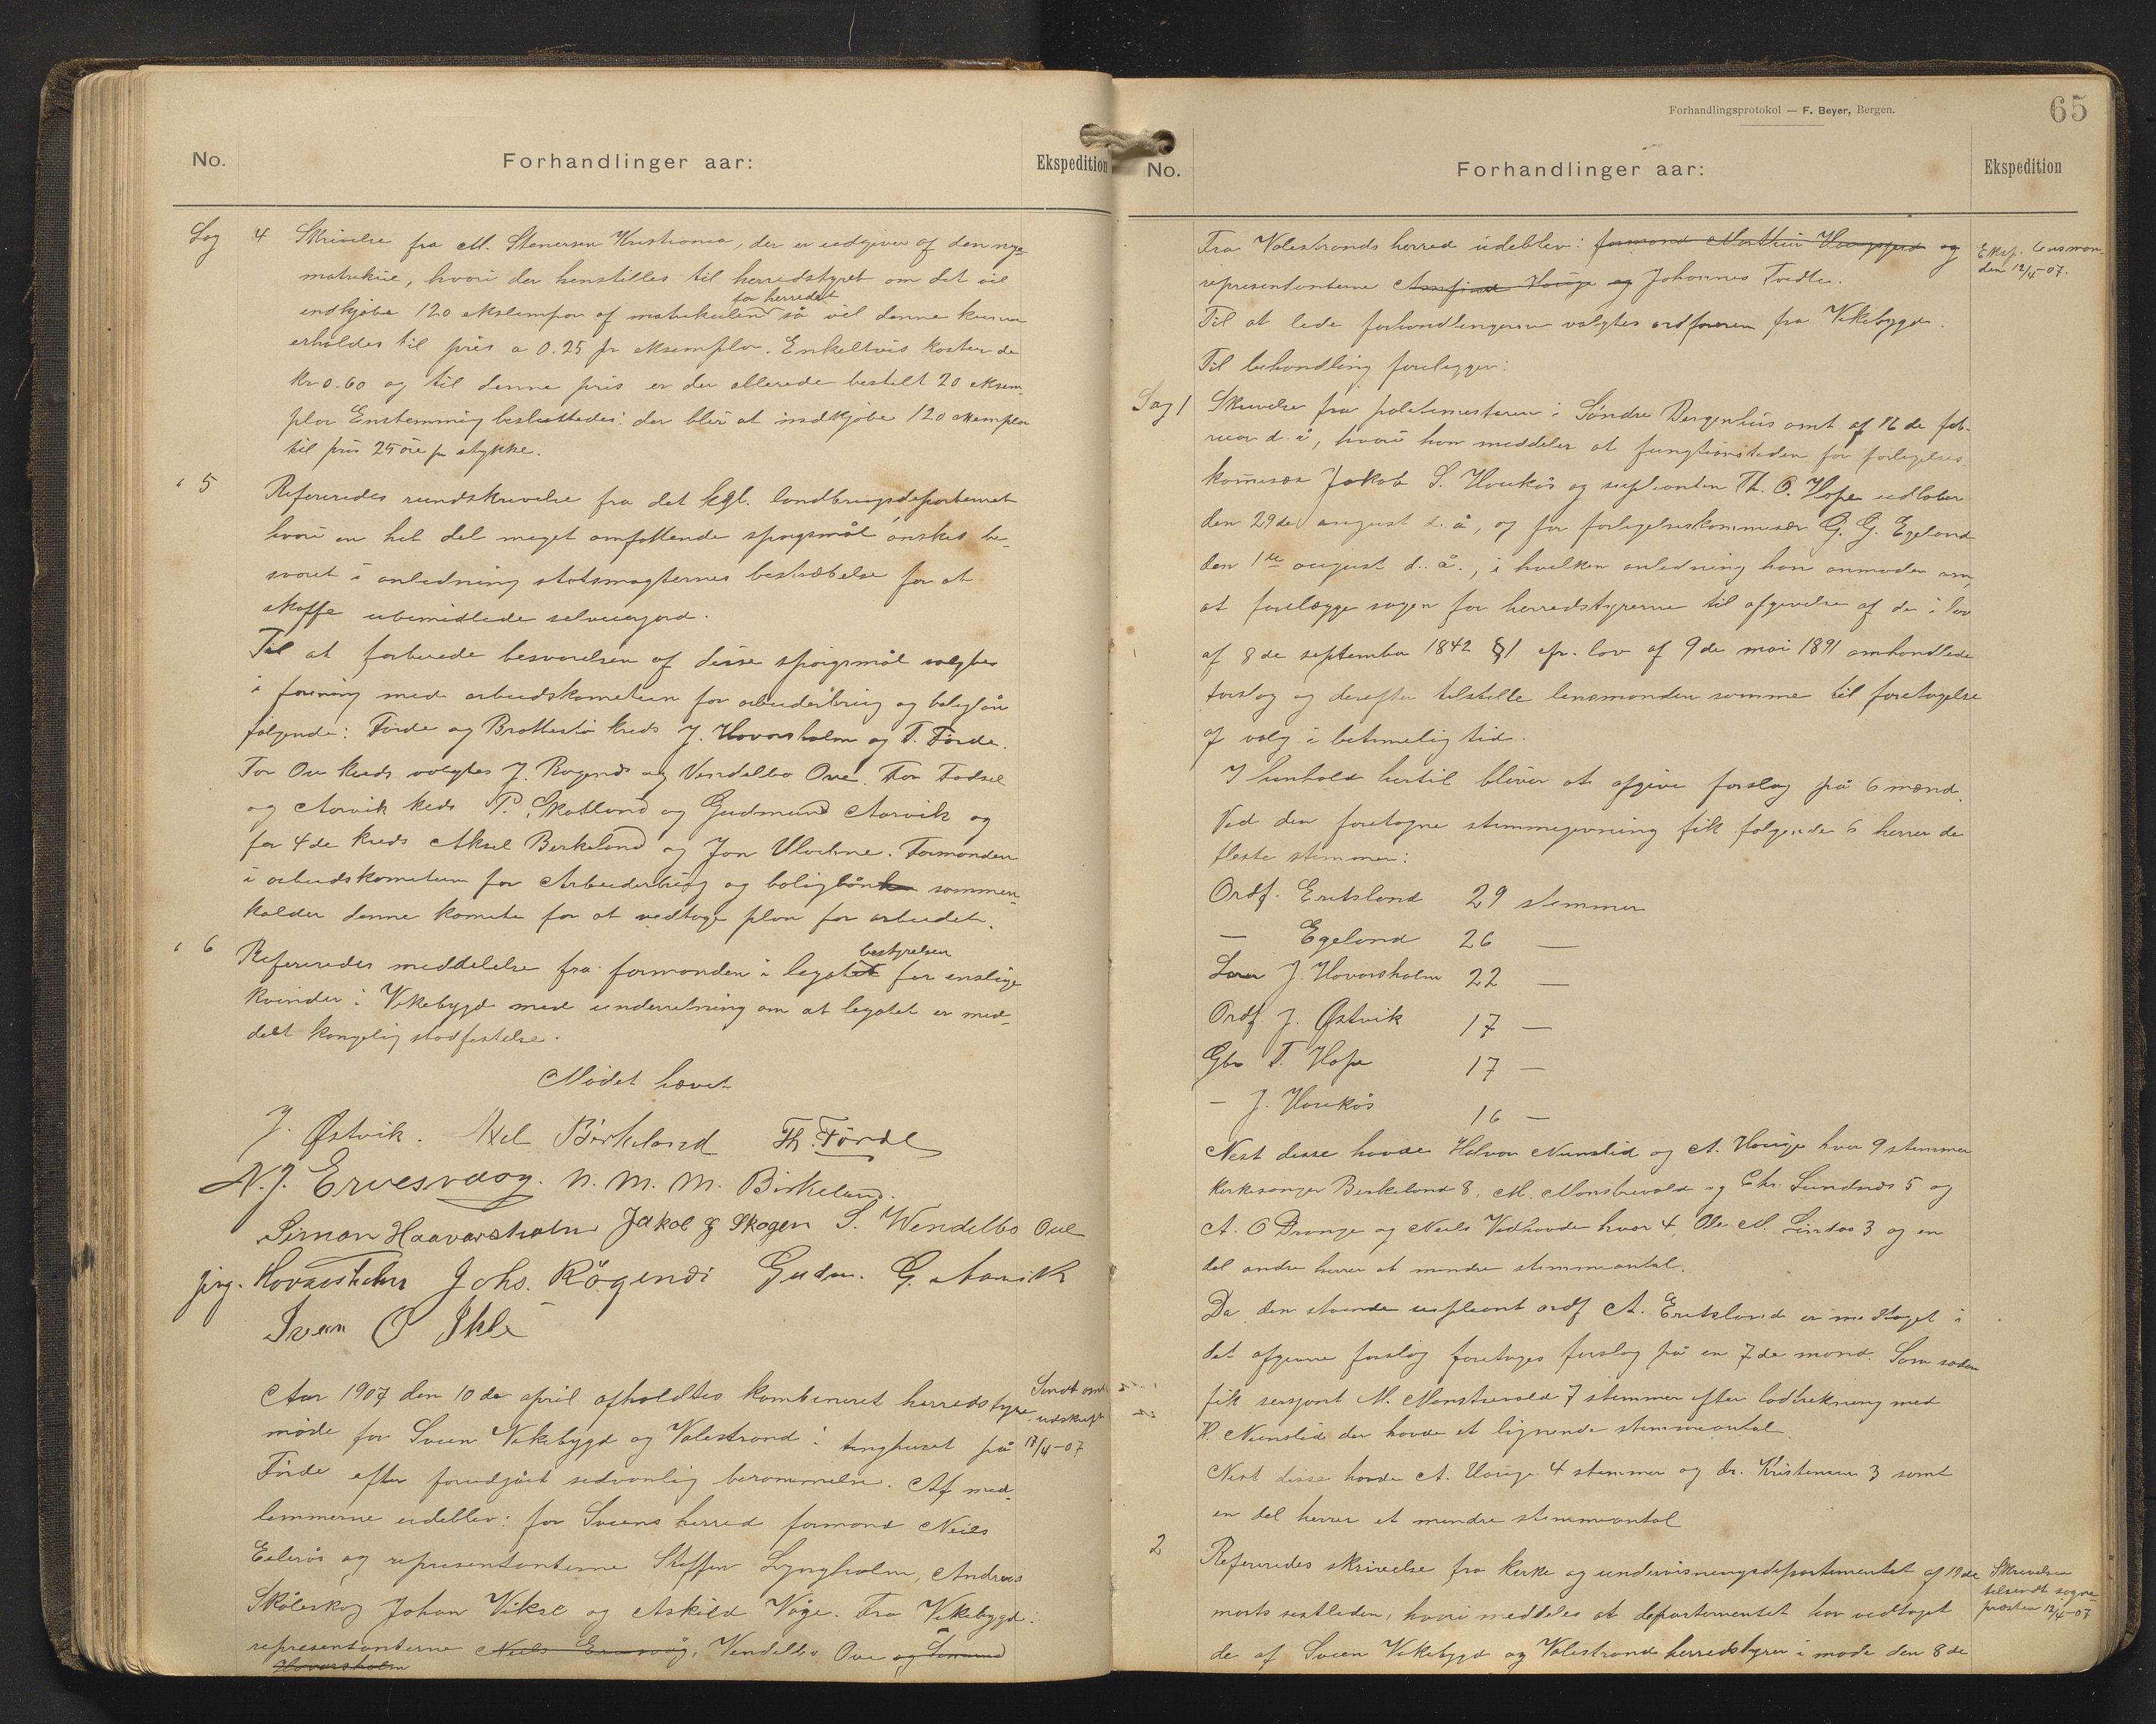 No.
Forhandlinger aar:
Ekspedition
Sag 4 Skrivelse fra M. Stenersen Kristiania, der er udgiver af den nye
matrikul, hvori der henstilles til herredstyret om det vil
indkjøbe 120 eksemplar af matrikulen for herredet så vil denne kunne
erholdes til pris a 0.25 pr eksemplar. Enkeltvis koster de
kr 0.60 og til denne pris er der allerede bestilt 20 eksem-
plar Enstemmig besluttedes: der blir at indkjøbe 120 exemplar
til pris 25 øre pr stykke.
" 5 Refereredes rundskrivelse fra det kgl. landbrugsdepartemet
hvori en hel del meget omfattende spørgsmål ønskes be-
svaret i anledning statsmagternes bestræbelse for at
skaffe ubemidlede selveierjord.
Til at forberede besvarelsen af disse spørgsmål valgtes
i forening med arbeidskomiteen for arbeiderbrug og boliglån
følgende: Førde og Brattestø kreds J. Hovarsholm og T. Førde.
For Ove kreds valgtes J. Røgenes og Vendelbo Ove. For
og Aarvik kreds P. Skatland og Gudmund Aarvik og
for 4de kreds Aksel Berkeland og Jon Ulvehne. Formanden
i arbeidskomiteen for Arbeiderbrug og boliglån sammen-
kalder denne komite for at vedtage plan for arbeidet.
" 6 Refereredes meddelelse fra formanden i legatbestyrelsen for enslige
kvinder i Vikebygd med underretning om at legatet er med-
delt kongelig stadfestelse.
Mødet hævet
J. Østvik. Axel Birkeland Th. Førde
N. J. Ervesvaag. N. M. M. Birkeland.
Simon Haavarsholm Jakob J Skogen S. Wendelbo Ove
Jørg. Hovarsholm Johs. Røgenes Gudm. G. Aarvik
Iven O
Aar 1907 den 10de april afholdtes kombineret herredstyre-
møde for Sveen Vikebygd og Valestrand i tinghuset på
Førde efter foregået sedvanlig berammelse. Af med-
lemmerne udeblev: for Sveens herred formand Neils
og representanterne Steffen Lyngholm, Andreas
Skåleskog Johan Vikse og Askild Våge. Fra Vikebygd:
representanterne Neils Ervesvåg, Vendelbo Ove og Simund
Hovarsholm
Sendt amt
udskrift
17/4-07
Forhandlingsprotokol — F. Beyer, Bergen.
65
No.
Forhandlinger aar:
Ekspedition
Fra Valestrands herred udeblev: formand Mathias og
representanterne Amfind Houge og Johannes Tvedte.
Til at lede forhandlingerne valgtes ordføreren fra Vikebygd.
Til behandling foreligger:
Eksp. lensman.
den 12/4-07.
Sag 1 Skrivelse fra politimesteren i Søndre Bergenhus amt af 16de feb-
ruar d. å, hvori han meddeler at fungtionstiden for forligelses-
komisær Jakob S. Houkås og suplianten Th. O. Hope udløber
den 29de august d. å, og for forligelseskommisær G. G. Egeland
den 1ste august d. å., i hvilken anledning han anmoder om,
at forelægge sagen for herredstyrerne til afgivelse af de i lov
af 8de september 1842 § 1 cfr. lov af 9de mai 1891 omhandlede
forslag og derefter tilstille lensmanden samme til foretagelse
af valg i betimelig tid.
I henhold hertil bliver at afgive forslag på 6 mænd.
Ved den foretagne stemmegivning fik følgende 6 herrer de
fleste stemmer:
Ordf. Eritsland 29 stemmer
— Egeland 26 —
J. Hovarsholm 22 —
Ordf. J. Østvik 17 —
Gbr T. Hope 17 —
— J. Houkås 16 —
Nest disse havde Halvor Nernslid og A. Houge hver 9 stemmer
kirkesanger Berkeland 8, M. Monstrevold og Chr. Sundnes 5 og
A. O Drange og Neils Vedhovde hver 4, Ole M. Lindås 3 og en
del andre herrer et mindre stemmeantal.
Da den stående suppleant ordf A. Eritsland er medtaget i
det afgivne forslag foretages forslag på en 7de mand. Som sådan
fik sersjant M. Monstrevold 7 stemmer efter lodtrekning med
H. Nernslid der havde et lignende stemmeantal.
Nest disse havde A. Houge 4 stemmer og dr. Kristensen 3 samt
en del herrer et mindre stemmeantal
2 Refereredes skrivelse fra kirke og undervisningsdepartementet af 19de
marts sistleden, hvori meddeles at departementet har vedtaget
de af Sveen Vikebygd og Valestrands herredstyrer i møde den 8de
Skrivelsen
tilsendt sogne-
presten 12/4-07